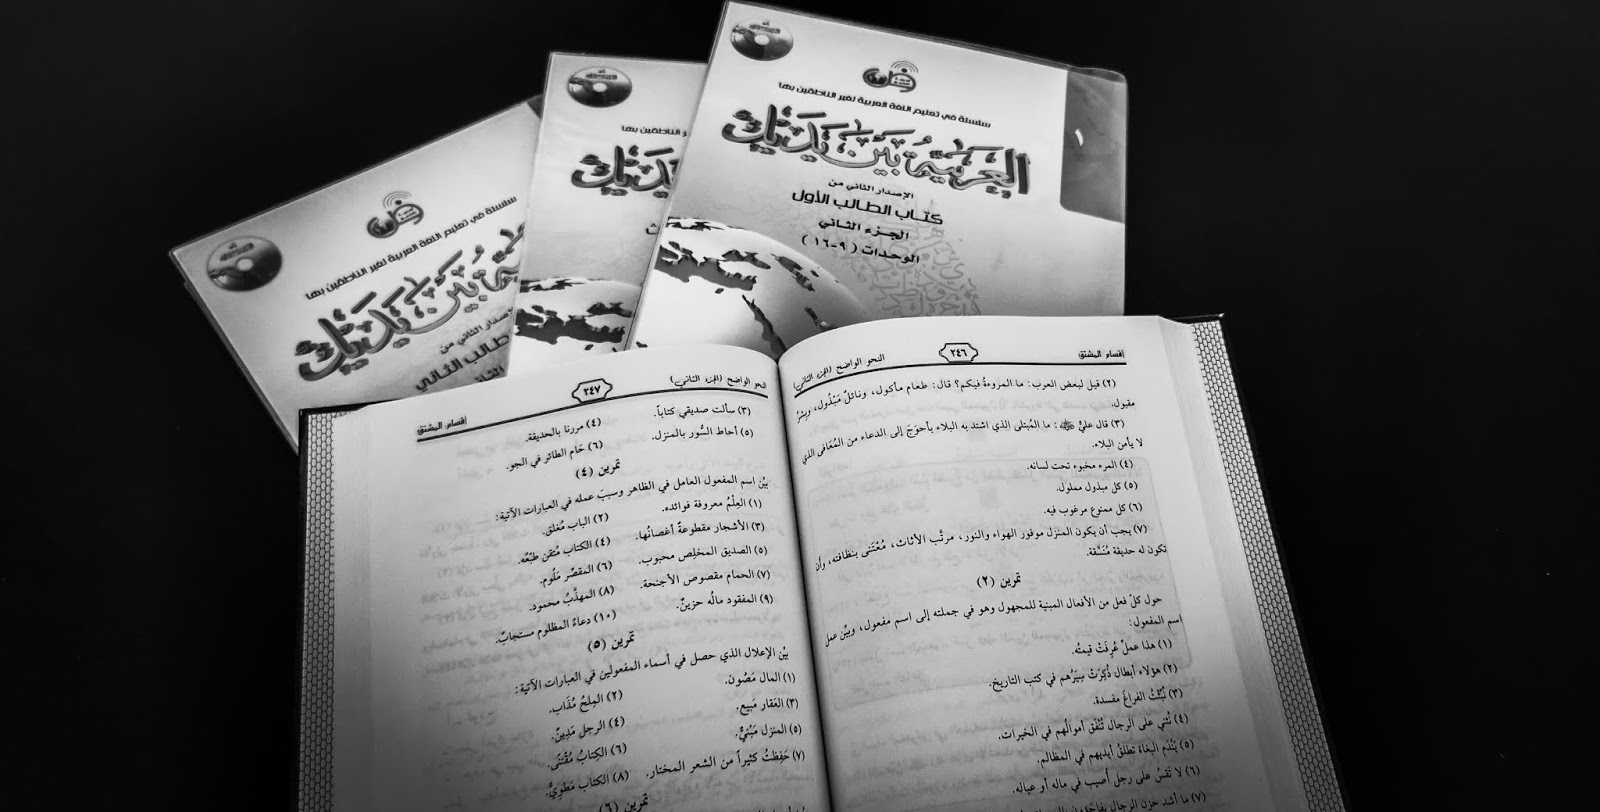 سلسلة في تعليم اللغة العربية لغير الناطقين بها
العربية بين يديك
الإصدار الثاني من
كتاب الطالب الأول
الجزء الثاني
الوحدات (٩-١٦)
الناطقين بها
يديك
سلسلة في تعليم اللغة العربية لغير الناطقين بها
بين يديك
الثاني من
الطالب الثاني
أقسام المشتق ٢٤٦ النحو الواضح (الجزء الثاني)
(٢) قيل لبعض العرب: ما المروءةُ فيكم؟ قال: طعام مأكول، ونائلٌ مَبْذُول، وبِشرٌ
مقبول.
(٣) قال عليٌّ ﷺ: ما المُبتلى الذي اشتد به البلاء بأحوَجَ إلى الدعاء من المُعَافى الذي
لا يأمن البلاء.
(٤) المرء مخبوء تحت لسانه.
(٥) كل مبذول مملول.
(٦) كل ممنوع مرغوب فيه.
(٧) يجب أن يكون المنزل موفور الهواء والنور، مرتَّب الأثاث، مُعْتَنى بنظافته، وأن
تكون له حديقة مُنَسَّقة.
تمرين (٢)
حول كلّ فعل من الأفعال المبنية للمجهول وهو في جملته إلى اسم مفعول، وبيّن عمل
اسم المفعول:
(١) هذا عملٌ عُرِفَتْ قيمتُه.
(٢) هؤلاء أبطال ذُكِرَتْ سِيَرُهم في كتب التاريخ.
(٣) نُبِّئْتُ الفراغَ مفسدة.
(٤) نُثني على الرجال تُنْفَق أموالُهم في الخيرات.
(٥) يَنْدَم البغاة تطلقُ أيديهم في المظالم.
(٦) لا تَقْسُ على رجل أُصيب في ماله أو عياله.
(٧) ما أشد حزن الرجال
النحو الواضح (الجزء الثاني) ٢٤٧ أقسام المشتق
(٣) سألت صديقي كتاباً. (٤) مررنا بالحديقة.
(٥) أحاط السُّور بالمنزل. (٦) حَام الطائر في الجو.
تمرين (٤)
بيِّن اسم المفعول العامل في الظاهر وسببَ عمله في العبارات الآتية:
(١) العِلْمُ معروفة فوائده. (٢) الباب مُغلق.
(٣) الأشجار مقطوعةٌ أغصانُها. (٤) الكتاب مُتقن طبْعُه.
(٥) الصديق المخلِص محبوب. (٦) المقصِّر مَلُوم.
(٧) الحمام مقصوص الأجنحة. (٨) المهذَّبُ محمود.
(٩) المفقود مالُه حزينٌ. (١٠) دعاءُ المظلوم مستجابٌ.
تمرين (٥)
بيِّن الإعلال الذي حصل في أسماء المفعولين في العبارات الآتية:
(١) المال مَصُون. (٢) المِلحُ مُذَاب.
(٣) العَقار مَبِيع. (٤) الرجل مَدِينٌ.
(٥) المنزل مَبْنيٌّ. (٦) الكِتابُ مُقْتَنًى.
(٧) حَفِظتُ كثيراً من الشعر المختار. (٨) الكتاب مَطوِيٌّ.
تمرين (٦)